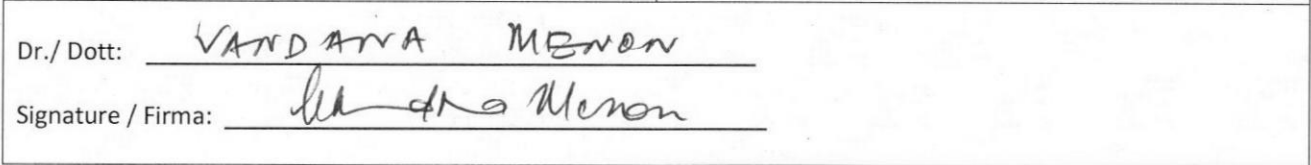 Dr./ Dott: VANDANA MENON
Signature / Firma: Menon